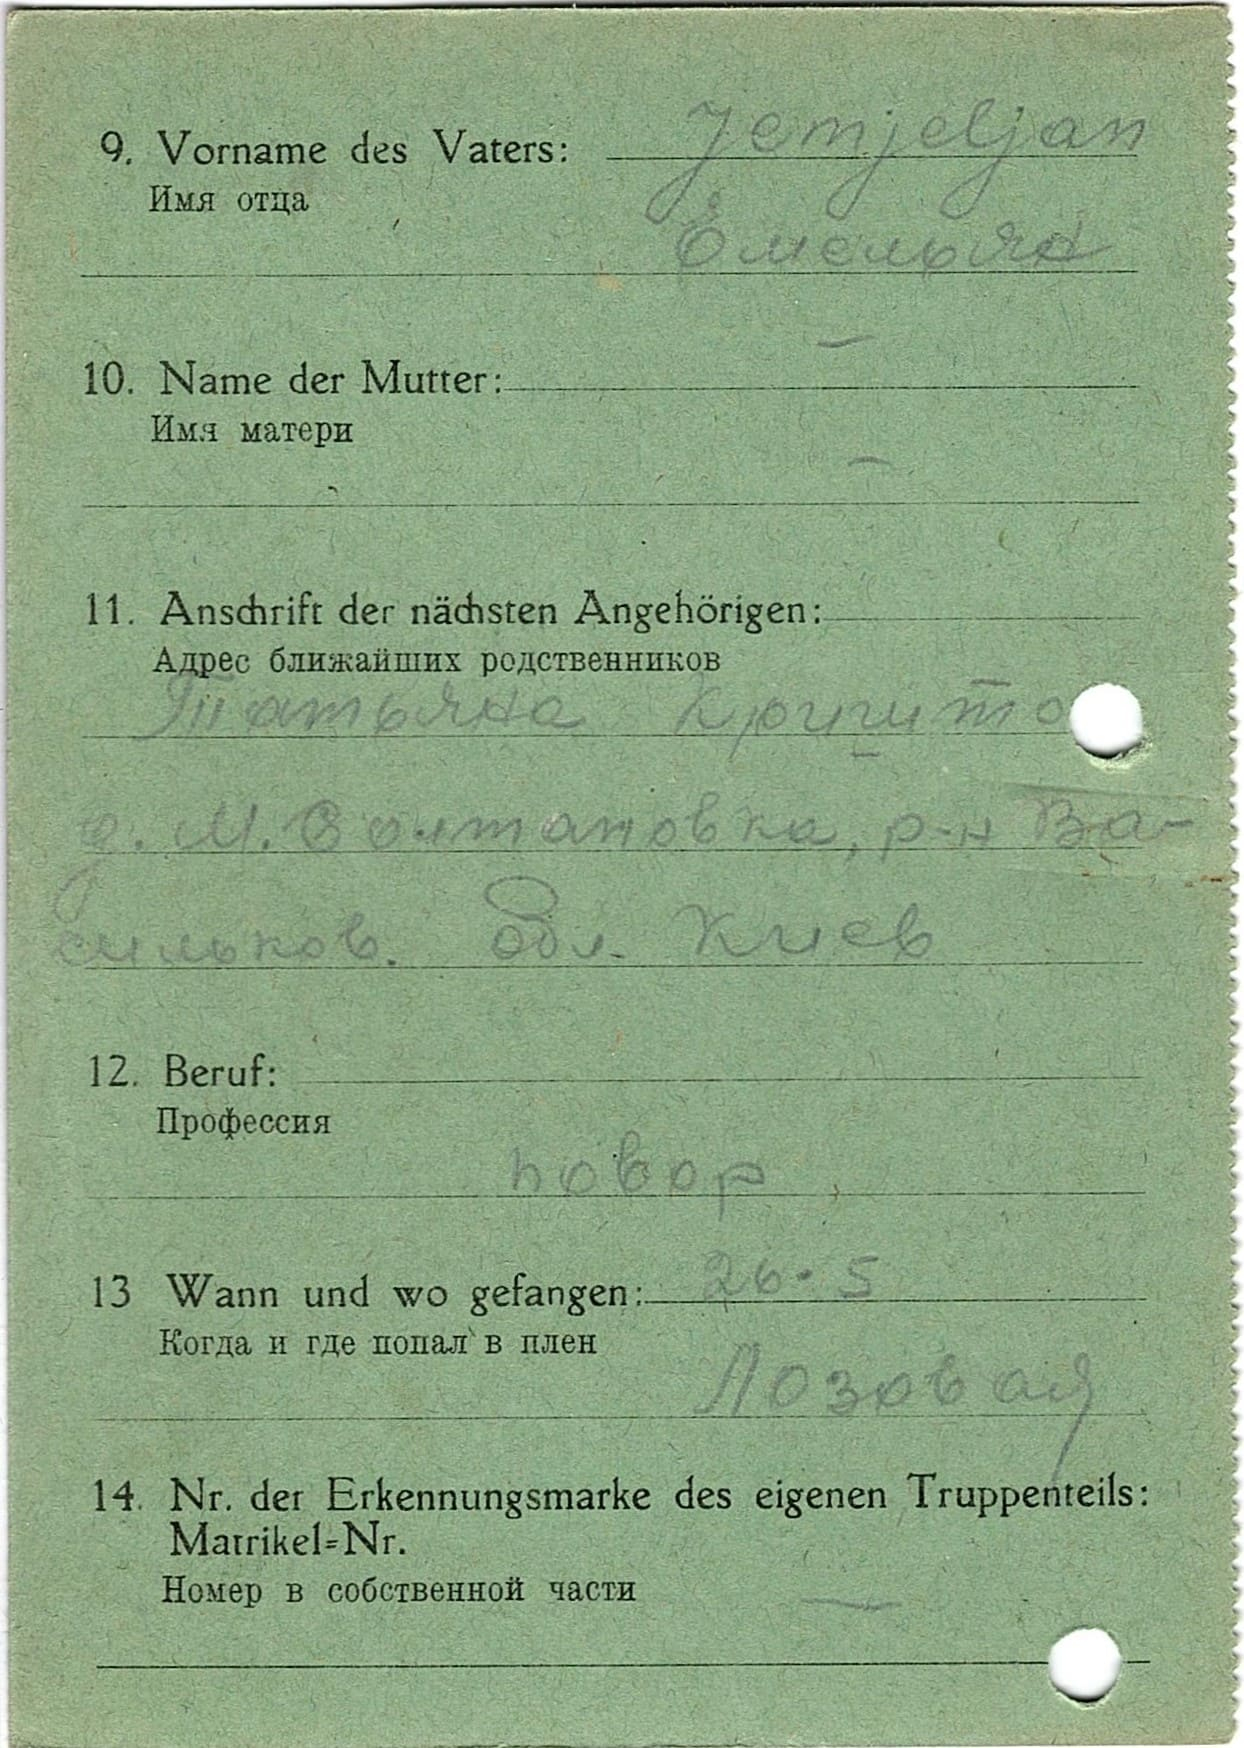 9. Vorname des Vaters: Jemjeljan
Имя отца
Емельян
10. Name der Mutter: —
Имя матери
—
11. Anschrift der nächsten Angehörigen:
Адрес ближайших родственников
Татьяна
д. М. Солтановка, р-н Ва-
сильков. обл. Киев
12. Beruf:
Профессия
повар
13 Wann und wo gefangen: 26.5
Когда и где попал в плен
Лозовая
14. Nr. der Erkennungsmarke des eigenen Truppenteils:
Matrikel=Nr.
Номер в собственной части
—